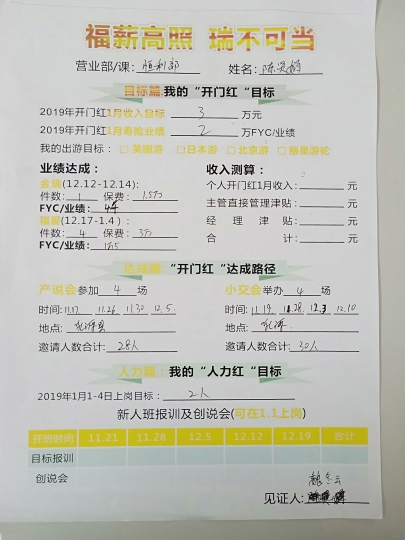 福薪高照 瑞不可当
营业部/课: 恒利部 姓名: 陈
目标篇:我的“开门红“目标
2019年开门红1月收入目标 3 万元
2019年开门红1月寿险业绩 2 万FYC/业绩
我的出游目标: □英国游 □日本游 □北京游 □游轮
业绩达成: 收入测算:
(12.12-12.14): 个人开门红1月收入: 元
件数: 1 保费: 1.5万 主管直接管理津贴: 元
FYC/业绩: 经 理 津 贴: 元
(12.17-1.4): 合 计: 元
件数: 4 保费: 3万
FYC/业绩:
达成篇:“开门红“达成路径
产说会参加 4 场 小交会举办 4 场
时间: 11.17 11.26 11.30 12.5 时间: 11.19 11.28 12.3 12.10
地点: 地点:
邀请人数合计: 28人 邀请人数合计: 30人
人力篇:我的“人力红“目标
2019年1月1-4日上岗目标: 2人
新人班报训及创说会(可在1.1上岗)
开班时间 11.21 11.28 12.5 12.12 12.19 合计
目标报训
创说会
见证人: